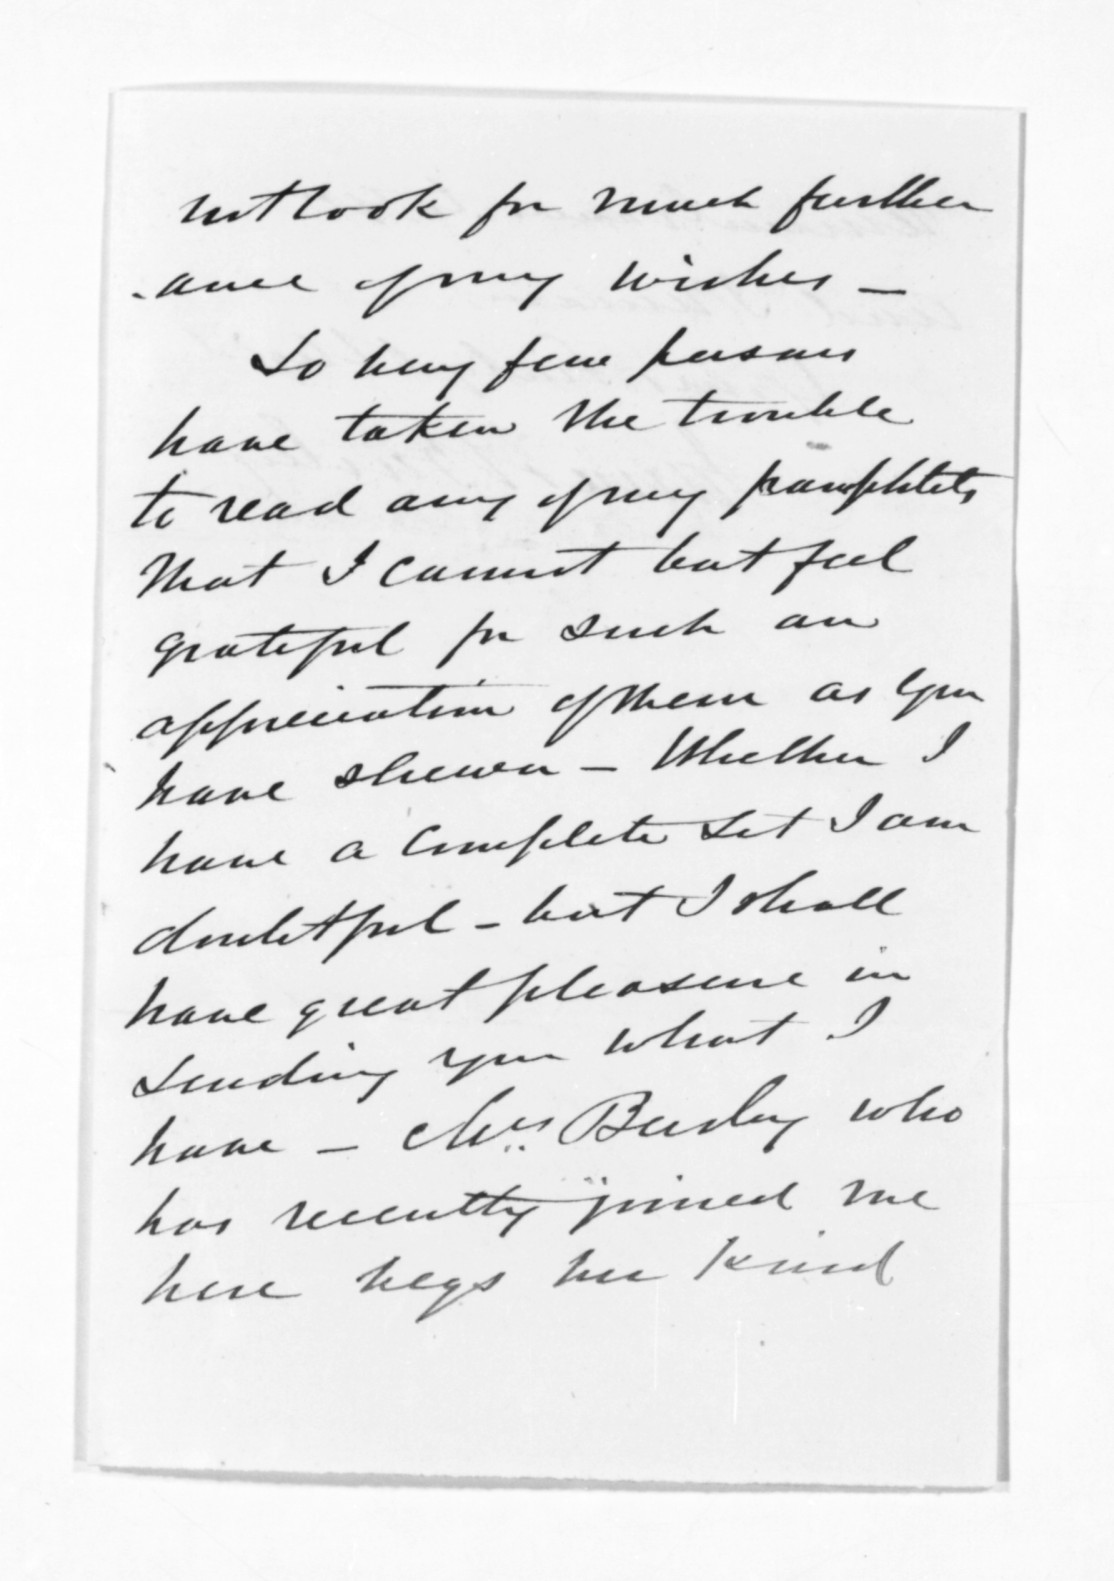 not look for much further
-ance of my wishes —
So very few persons
have taken the trouble
to read any of my pamphlets
that I cannot but feel
grateful for such an
appreciation of them as you
have shewn — Whether I
have a complete set I am
doubtful — but I shall
have great pleasure in
sending you what I
have — Mrs Busby who
has recently joined me
here begs her kind